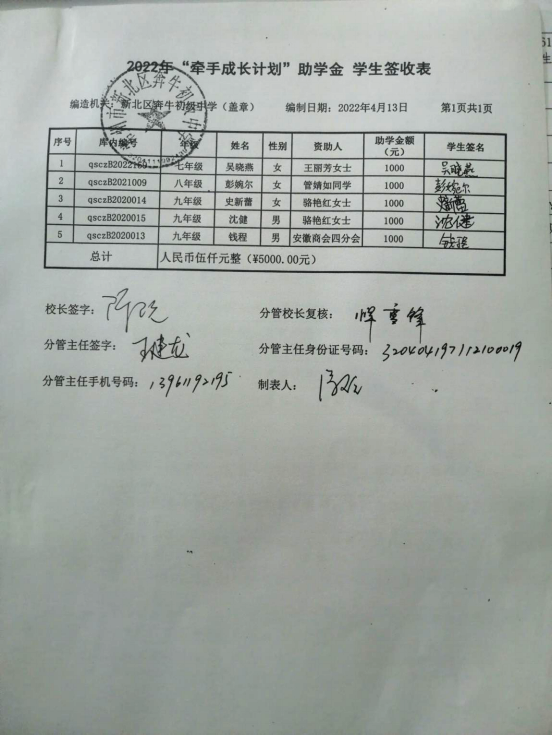 2022年“牵手成长计划”助学金 学生签收表
编造机关：新北区奔牛初级中学（盖章） 编制日期：2022年4月13日 第1页共1页
序号 库内编号 年级 姓名 性别 资助人 助学金额（元） 学生签名
1 七年级 吴晓燕 女 王丽芳女士 1000 吴晓燕
2 qsczB2021009 八年级 彭婉尔 女 管婧如同学 1000 彭婉尔
3 qsczB2020014 九年级 史新蕾 女 骆艳红女士 1000
4 qsczB2020015 九年级 沈健 男 骆艳红女士 1000 沈健
5 qsczB2020013 九年级 钱程 男 安徽商会四分会 1000 钱程
总计 人民币伍仟元整（¥5000.00元）
校长签字： 分管校长复核：恽雪锋
分管主任签字：王建龙 分管主任身份证号码：320404197112100019
分管主任手机号码：13961192195 制表人：